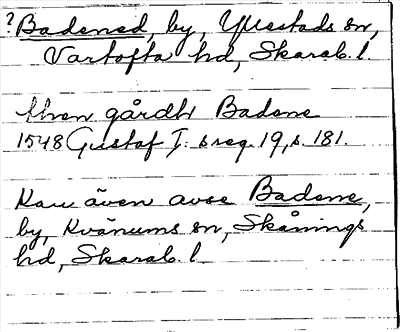 ? Badened, by, Yllestads sn,
Vartofta hd, Skarab. l.
then gårdh Badene
1548 Gustaf I:s reg. 19, s. 181.
Kan även avse Badene,
by, Kvänums sn, Skånings
hd, Skarab. l.